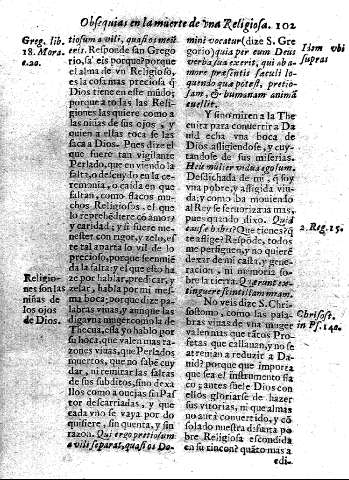 Obsequias en la muerte de vna Religiosa. 102
Greg. lib.
18. Mora.
c.20.
Religio-
nes son las
niñas de
los ojos
de Dios.
tiosum a vili, quasi os meũ
erit. Responde san Grego
rio, sa eis porque? porque
el alma de vn Religioso,
es la cosa mas preciosa q̃
Dios tiene en este mũdo,
porque a todas las Reli-
giones las quiere como a
las niñas de sus ojos, y
quien a ellas toca se las
saca a Dios. Pues dize el
que fuere tan vigilante
Perlado, que en viendo la
falta, o descuydo en la ce-
remonia, o caida en que
faltan, como flacos mu-
chos Religiosos, el que
lo reprehẽdiere cõ amor?
y caridad, y si fuere me-
nester con rigor, y zelo, es
te tal aparta lo vil de lo
precioso, porque se enmiẽ
da la falta: y el que esto ha
ze por hablar, predicar, y
zelar, habla por mi mes-
ma boca; porque dize pa-
labras viuas, y aunque las
diga vna muger como la de
Thecua, ella yo hablo por
su boca, que valen mas ra-
zones viuas, que Perlados
muertos, que no sabẽ cuy
dar, ni remirar las faltas
de sus subditos, sino dexa
llos como a ouejas sin Pas
tor descarriadas, y que
cada vno se vaya por do
quisiere, sin quenta, y sin
razon. Qui ergo pretiosum
a vili separat, quasi os Do-
mini vocatur (dize S. Gre
gorio) quia per eum Deus
verba sua exerit, qui ab a-
more præsentis sæculi lo-
quendo qua potest, pretio-
sam, & humanam animã
euellit.
Y sino miren a la The
cuita para conuertir a Da
uid echa vna boca de
Dios afligiendose, y cuy-
tandose de sus miserias.
Heu mulier vidua ego sum.
Desdichada de mi, q̃ soy
vna pobre, y afligida viu-
da; y como iba mouiendo
al Rey se ternorizaua mas,
pues quando dixo. Quid
causæ habes? Que tienes? q̃
te aflige? Respõde, todos
me persiguen, y no quierẽ
dexar de mi casta, y gene-
racion, ni memoria so-
bre la tierra. Quærunt ex-
tinguere scintillam meam.
No veis dize S. Chri-
sostomo, como las pala-
bras viuas de vna muger
valen mas que tãtos Profe
tas que callauan, y no se
atreuian a reduzir a Da-
uid? porque que importa
que sea el instrumento fla
co; antes suele Dios con
ellos gloriarse de hazer
sus vitorias, ni que almas
no aurà conuertido, y cõ
solado nuestra difunta po
bre Religiosa escondida
en su rincon? quãto mas a
edi-
Idem vbi
supras
2. Reg. 15.
Chrisost.
in Ps. 140.